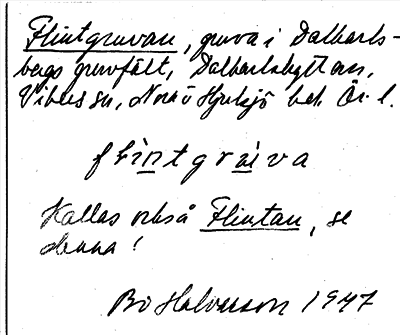 Flintgruvan, gruva i Dalkarls-
bergs gruvfält, Dalkarlshyttan,
Vikers sn, Nora o Hjulsjö bek Ör. l.
flintgruva
Kallas också Flintan, se
denna!
Bo Halvarson 1947